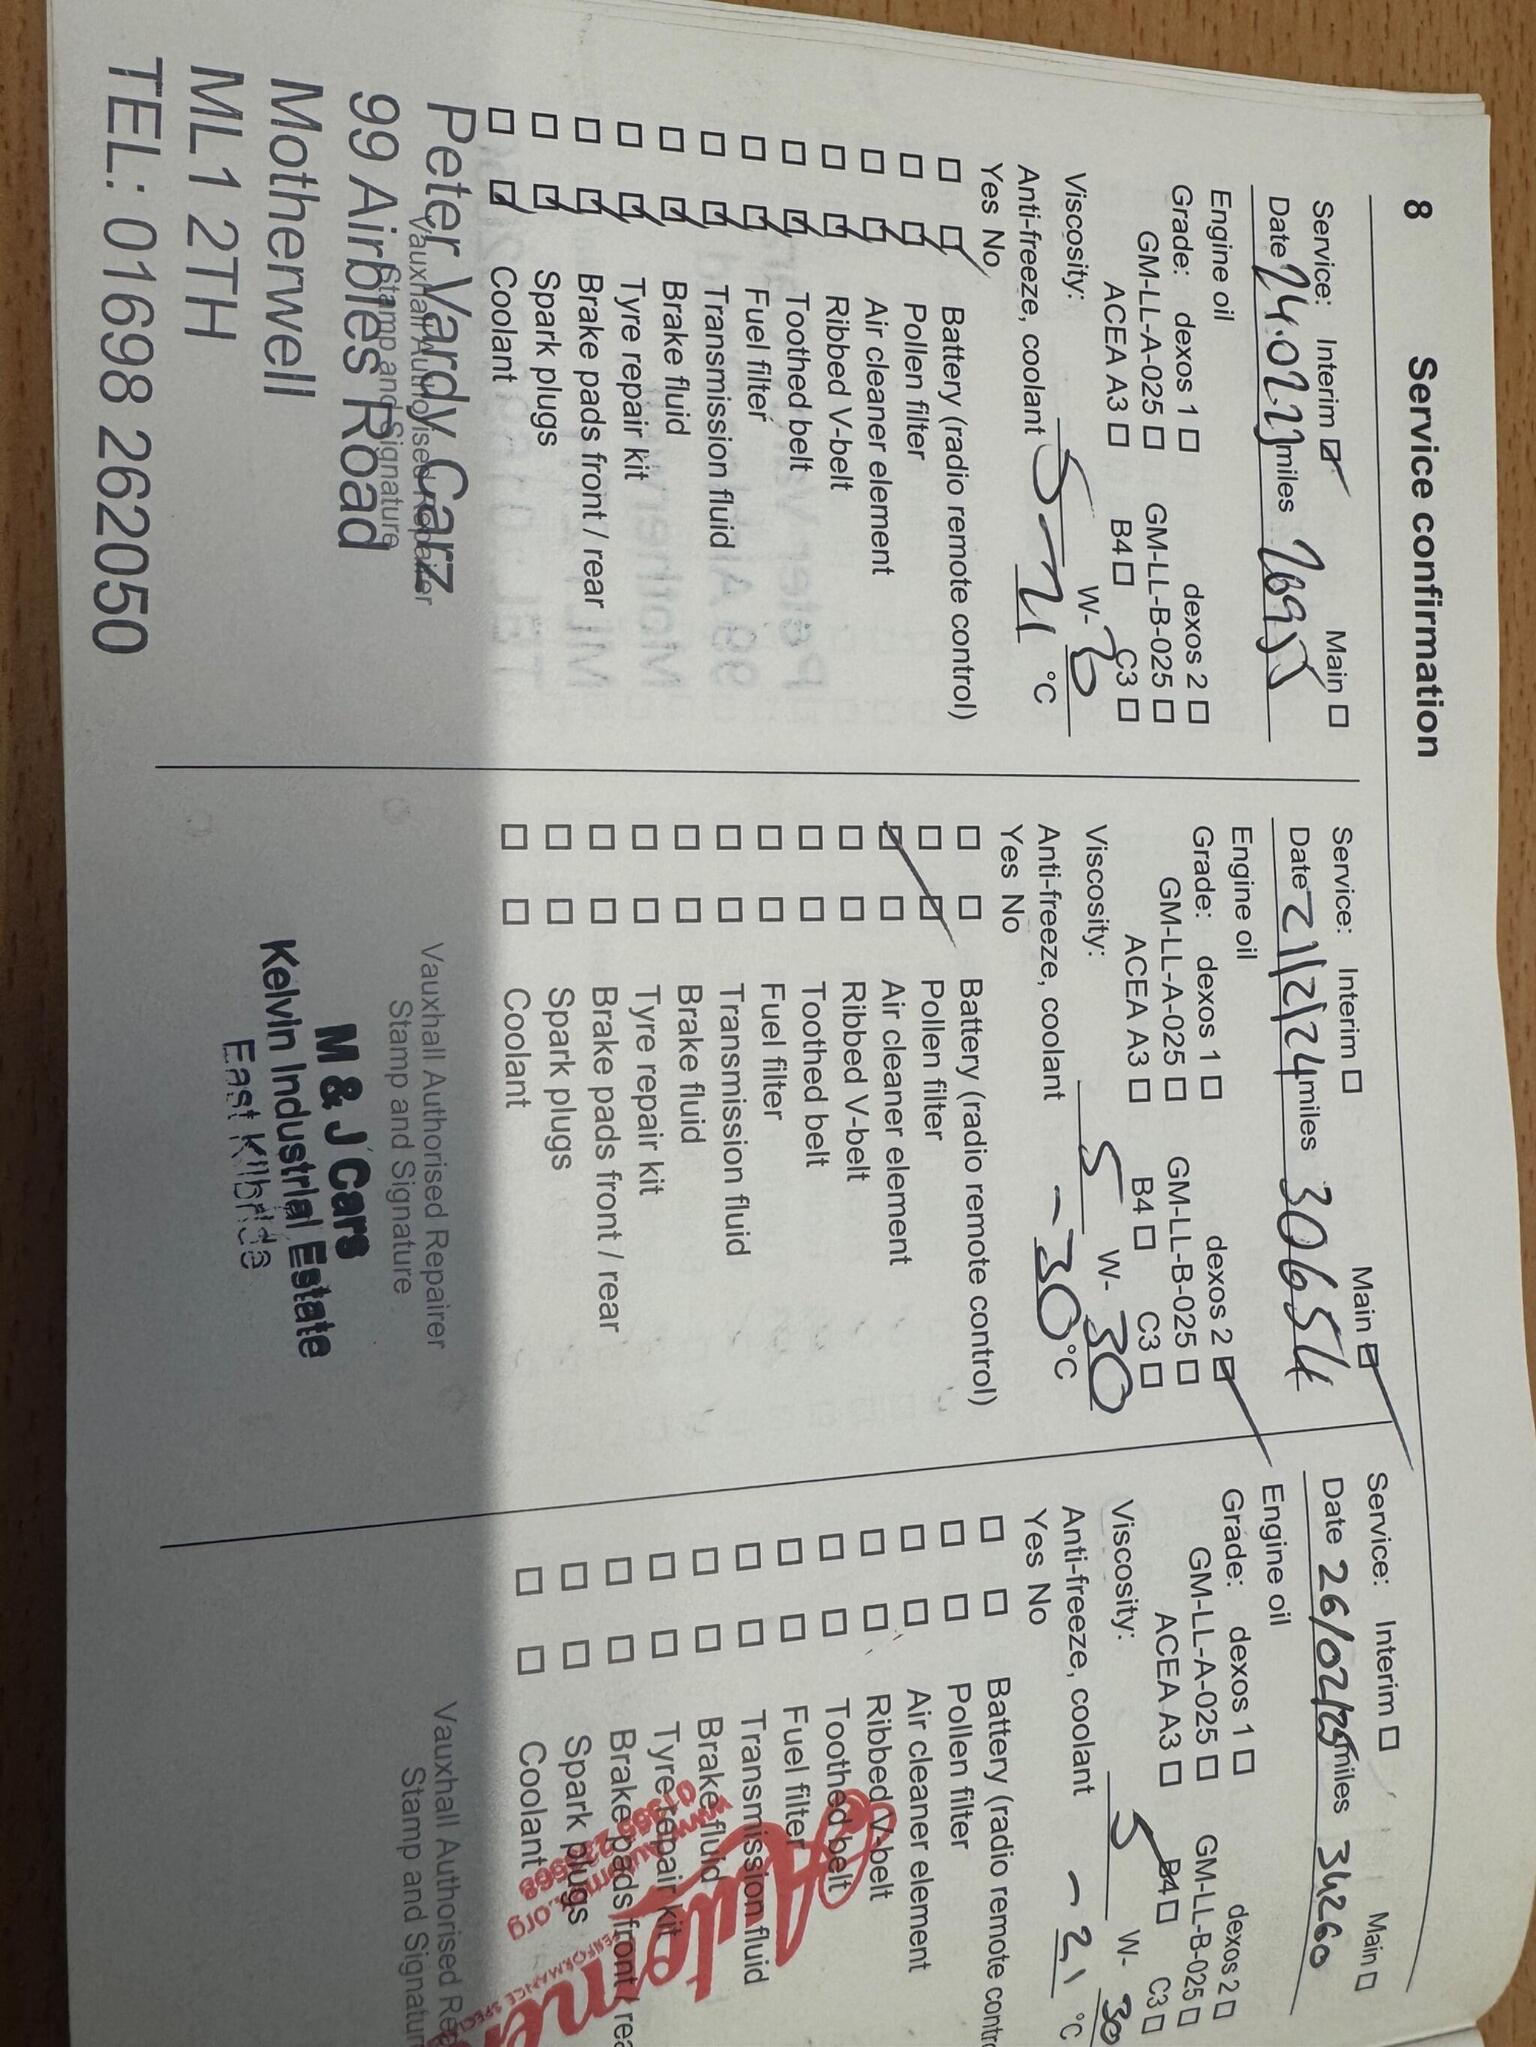 8 Service confirmation
Service: Interim ☑ Main ☐
Date 24.02.23 miles 26955
Engine oil
Grade: dexos 1 ☐ dexos 2 ☐
GM-LL-A-025 ☐ GM-LL-B-025 ☐
ACEA A3 ☐ B4 ☐ C3 ☐
Viscosity: 5 W-
Anti-freeze, coolant -21 °C
Yes No
☐ ☑ Battery (radio remote control)
☐ ☑ Pollen filter
☐ ☑ Air cleaner element
☐ ☑ Ribbed V-belt
☐ ☑ Toothed belt
☐ ☑ Fuel filter
☐ ☑ Transmission fluid
☐ ☑ Brake fluid
☐ ☑ Tyre repair kit
☐ ☑ Brake pads front / rear
☐ ☑ Spark plugs
☐ ☑ Coolant
Vauxhall Authorised Repairer
Stamp and Signature
Peter Vardy Carz
99 Airbles Road
Motherwell
ML1 2TH
TEL: 01698 262050
Service: Interim ☐ Main ☑
Date 21/2/24 miles 30654
Engine oil
Grade: dexos 1 ☐ dexos 2 ☑
GM-LL-A-025 ☐ GM-LL-B-025 ☐
ACEA A3 ☐ B4 ☐ C3 ☐
Viscosity: 5 W-30
Anti-freeze, coolant -30 °C
Yes No
☐ ☐ Battery (radio remote control)
☐ ☑ Pollen filter
☑ ☐ Air cleaner element
☐ ☐ Ribbed V-belt
☐ ☐ Toothed belt
☐ ☐ Fuel filter
☐ ☐ Transmission fluid
☐ ☐ Brake fluid
☐ ☐ Tyre repair kit
☐ ☐ Brake pads front / rear
☐ ☐ Spark plugs
☐ ☐ Coolant
Vauxhall Authorised Repairer
Stamp and Signature
M & J Cars
Kelvin Industrial Estate
East Kilbride
Service: Interim ☐ Main ☐
Date 26/02/25 miles 34260
Engine oil
Grade: dexos 1 ☐ dexos 2 ☐
GM-LL-A-025 ☐ GM-LL-B-025 ☐
ACEA A3 ☐ B4 ☐ C3 ☐
Viscosity: 5 W-30
Anti-freeze, coolant -21 °C
Yes No
☐ ☐ Battery (radio remote contr
☐ ☐ Pollen filter
☐ ☐ Air cleaner element
☐ ☐ Ribbed V-belt
☐ ☐ Toothed belt
☐ ☐ Fuel filter
☐ ☐ Transmission fluid
☐ ☐ Brake fluid
☐ ☐ Tyre repair kit
☐ ☐ Brake pads front / rea
☐ ☐ Spark plugs
☐ ☐ Coolant
Vauxhall Authorised Re
Stamp and Signatur